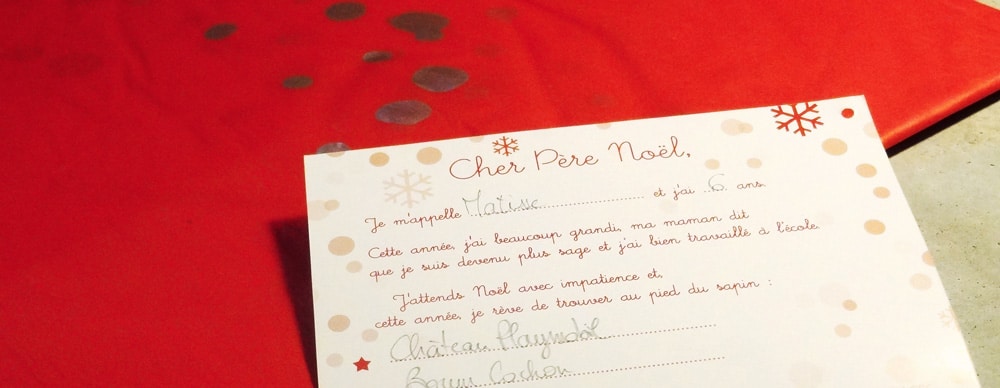 Cher Père Noël,
Je m'appelle Matisse et j'ai 6 ans.
Cette année, j'ai beaucoup grandi, ma maman dit
que je suis devenu plus sage et j'ai bien travaillé à l'école.
J'attends Noël avec impatience et,
cette année, je rêve de trouver au pied du sapin :
Château
Cochon